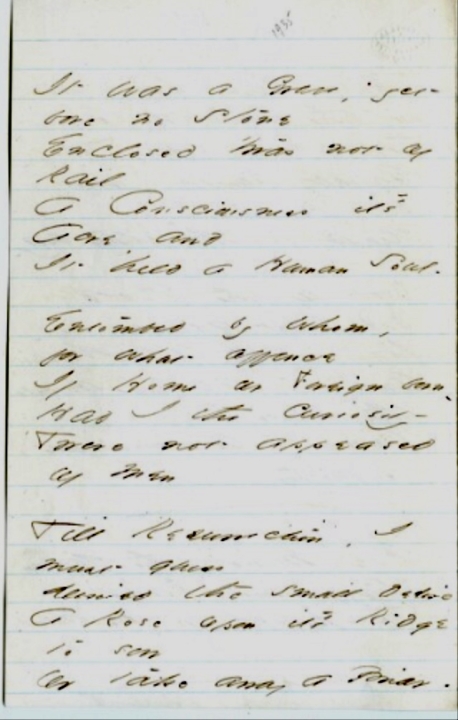 1935
It was a Grave, yet
bore no Stone
Enclosed 'twas not of
Rail
A Consciousness it's
Acre, and
It held a Human Soul.
Entombed by whom,
for what offence
If Home or Foreign born
Had I the curiosity
'Twere not appeased
of men
Till Resurrection, I
must guess
denied the small desire
A Rose upon it's Ridge
to sow
or take away a Briar.